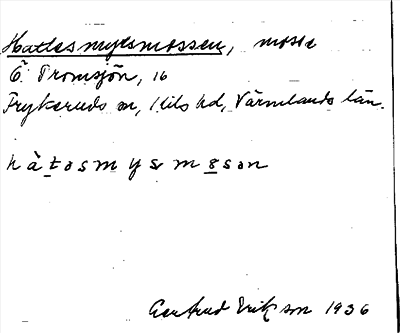 Hattesmyrsmossen, mosse
Ö. Tromsjön, 16
Frykeruds sn, Kils hd, Värmlands län.
hàtəsmysmɷsən
Gertrud Erikson 1936